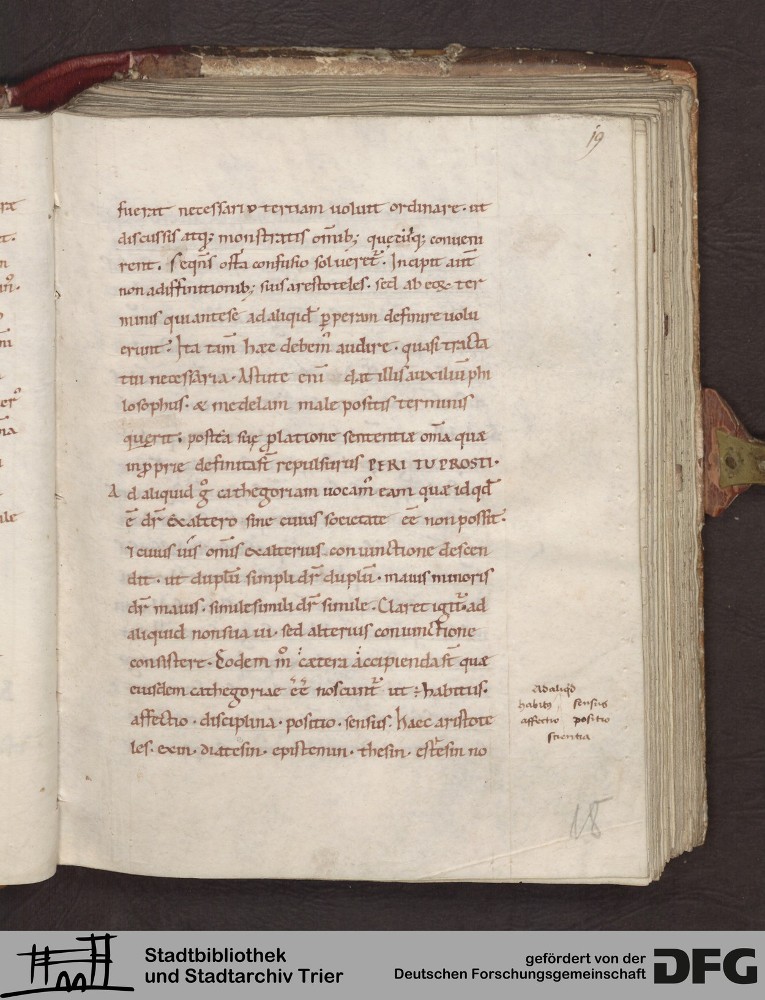 19
fuerat necessario tertiam uoluit ordinare · ut
discussis atq; monstratis om̄ib; quęcūq; conueni
rent . Seqn̄s ost̄a confusio solueret᷑ . Incipit aut̄
non adiffinitionib; suis arestoteles · sed ab eo ꝙ ter
minis qui ante se ad aliqid ꝑperam definire uolu
erunt . Ita tam̄ haec debem᷒ audire · quasi tracta
tui necessaria · Astute enī dat illis auxiliū phi
losophus · & medelam male positis terminis
quęrit · postea suę ꝓlatione sententiæ om̄a quæ
inꝓprie definitas̄t repulsurus PERI TU PROSTI ·
Ad aliquid g̊ cathegoriam uocam᷒ eam quæ id qd̄
ē dr̄ ex altero sine cuius societate eē non possit ·
⁊ cuius uis om̄is ex alterius coniunctione descen
dit · ut duplū simpli dr̄ duplū · maius minoris
dr̄ maius · simile simili dr̄ simile · Claret igit᷑ · ad
aliquid non sua ui · sed alterius coniunctione
consistere · Eodem m̊ cætera accipienda s̄t quæ
eiusdem cathegoriae eē noscunt᷑ ut : habitus ·
affectio · disciplina · positio · sensus . haec aristote
les · exin · diatesin · epistemin · thesin · estesin no
Ad aliqd
habit᷒ sensus
affectio positio
scientia
18
Stadtbibliothek
und Stadtarchiv Trier
gefördert von der
Deutschen Forschungsgemeinschaft
DFG